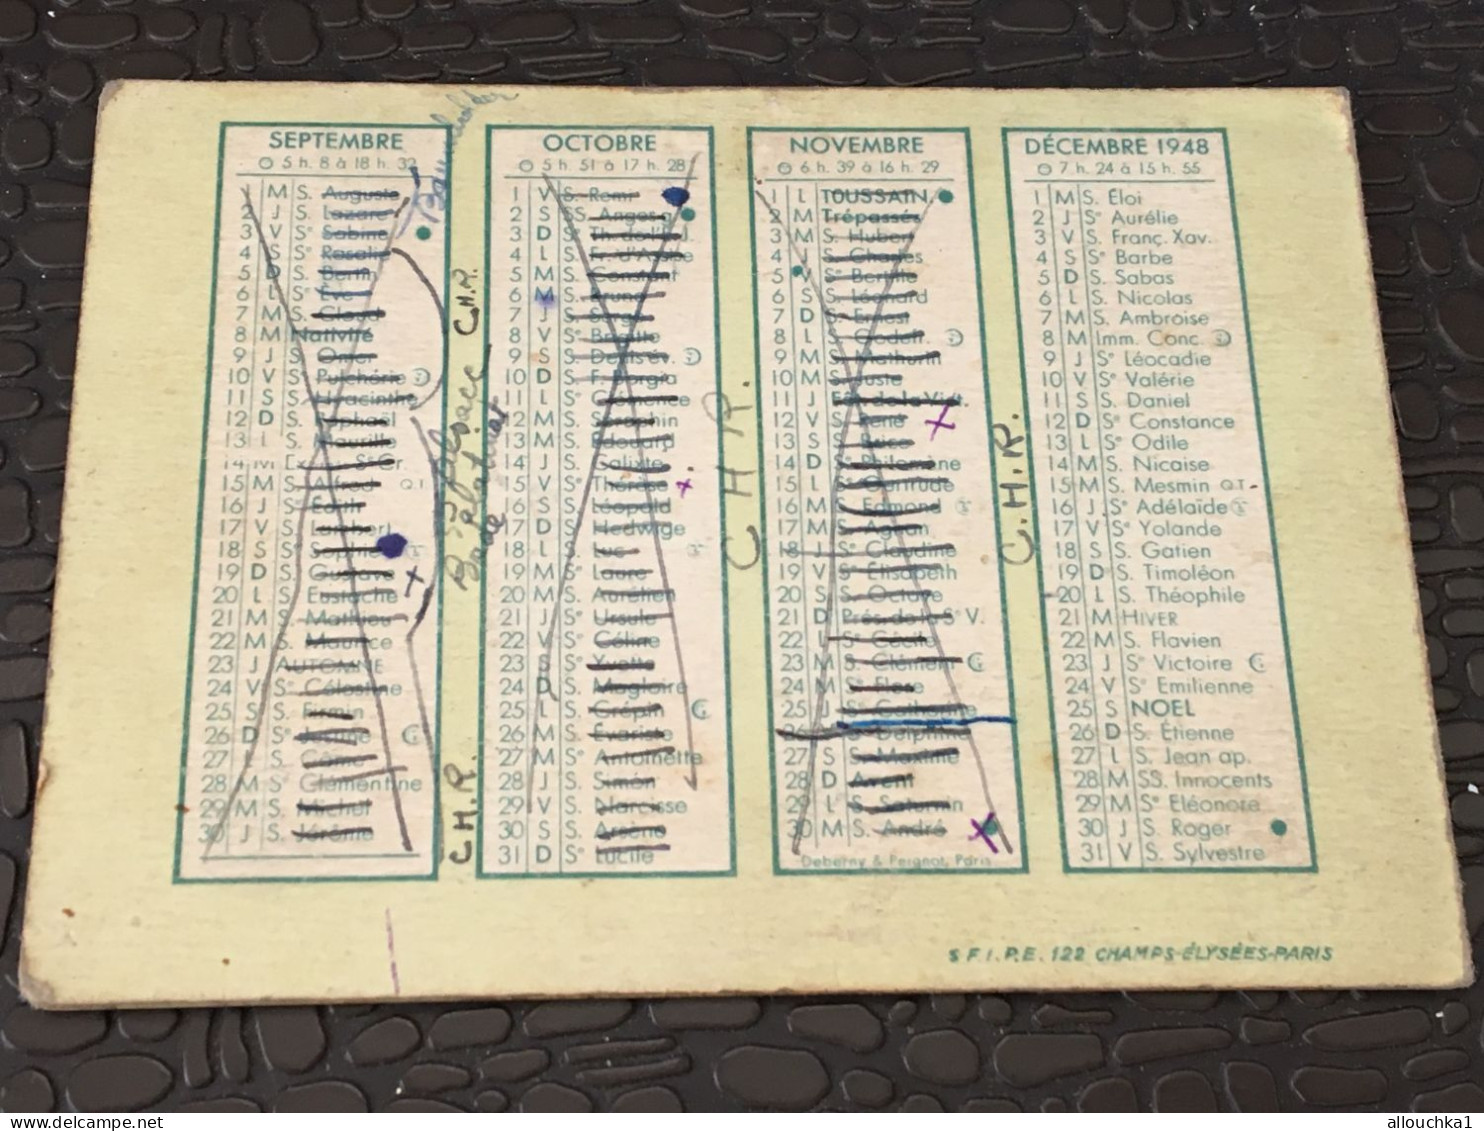 SEPTEMBRE
5 h. 8 à 18 h. 32
1 M S. Auguste
2 J S. Lazare
3 V Se Sabine
4 S Se Rosalie
5 D S. Bertin
6 L S. Eve
7 M S. Cloud
8 M Nativité
9 J S. Omer
10 V Se Pulchérie
11 S S. Hyacinthe
12 D S. Raphaël
13 L S. Maurille
14 M Ex. Ste Cr.
15 M S. Alfred Q.T.
16 J S. Edith
17 V S. Lambert
18 S Se S
19 D S. Gustave
20 L S. Eustache
21 M S. Mathieu
22 M S. Maurice
23 J AUTOMNE
24 V Se Célestine
25 S S. Firmin
26 D Se
27 L S. Côme
28 M S Clémentine
29 M S. Michel
30 J S. Jérôme
C.H.R.
Pelsacc
Bade
C.H.R.
OCTOBRE
5 h. 51 à 17 h. 28
1 V S. Remi
2 S SS. Anges g.
3 D Se Th. de l'E.J.
4 L S. Fr. d'Assise
5 M S. Constant
6 M S. Bruno
7 J S. Serge
8 V Se Brigitte
9 S S. Denis év.
10 D S. F. Borgia
11 L Se Clémence
12 M S. Séraphin
13 M S. Edouard
14 J S. Calixte
15 V Se Thérèse
16 S S. Léopold
17 D Se Hedwige
18 L S. Luc
19 M Se Laure
20 M S. Aurélien
21 J Se Ursule
22 V Se Céline
23 S Se Yvette
24 D S. Magloire
25 L S. Crépin
26 M S. Evariste
27 M Se Antoinette
28 J S. Simon
29 V S. Narcisse
30 S S. Arsène
31 D Se Lucile
C H R.
NOVEMBRE
6 h. 39 à 16 h. 29
1 L TOUSSAIN.
2 M Trépassés
3 M S. Hubert
4 J S. Charles
5 V Se Bertille
6 S S. Léonard
7 D S. Ernest
8 L S. Godefr.
9 M S. Mathurin
10 M S. Juste
11 J Fête de la Vict.
12 V S. René
13 S S. Brice
14 D Se Philomène
15 L Se Gertrude
16 M S. Edmond
17 M S. Agnan
18 J Se Claudine
19 V Se Elisabeth
20 S S. Octave
21 D Prés. de la Se V.
22 L Se Cécile
23 M S. Clément
24 M Se Flore
25 J Se Catherine
26 Se Delphine
27 S S. Maxime
28 D Avent
29 L S. Saturnin
30 M S. André
Deberny & Peignot, Paris
C.H.R.
DÉCEMBRE 1948
7 h. 24 à 15 h. 55
1 M S. Éloi
2 J Se Aurélie
3 V S. Franç. Xav.
4 S Se Barbe
5 D S. Sabas
6 L S. Nicolas
7 M S. Ambroise
8 M Imm. Conc.
9 J Se Léocadie
10 V Se Valérie
11 S S. Daniel
12 D Se Constance
13 L Se Odile
14 M S. Nicaise
15 M S. Mesmin Q.T.
16 J Se Adélaïde
17 V Se Yolande
18 S S. Gatien
19 D S. Timoléon
20 L S. Théophile
21 M HIVER
22 M S. Flavien
23 J Se Victoire
24 V Se Emilienne
25 S NOEL
26 D S. Étienne
27 L S. Jean ap.
28 M SS. Innocents
29 M Se Eléonore
30 J S. Roger
31 V S. Sylvestre
S.F.I.P.E. 122 CHAMPS-ÉLYSÉES-PARIS
www.delcampe.net
allouchka1